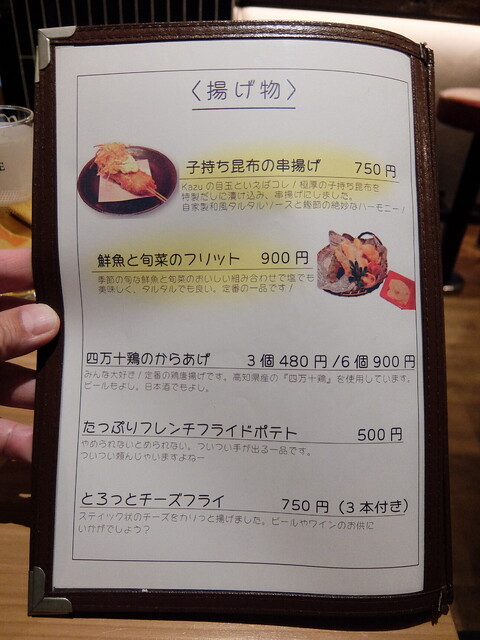 〈揚げ物〉
子持ち昆布の串揚げ 750円
Kazuの目玉といえばコレ！極厚の子持ち昆布を
特製だしに漬け込み、串揚げにしました。
自家製和風タルタルソースと鰹節の絶妙なハーモニー！
鮮魚と旬菜のフリハット 900円
季節の旬な鮮魚と旬菜のおいしい組み合わせで塩でも
美味しく、タルタルでも良い。定番の一品です！
四万十鶏のからあげ 3個480円/6個900円
みんな大好き！定番の鶏唐揚げです。高知県産の『四万十鶏』を使用しています。
ビールもよし。日本酒でもよし。
たっぷりフレンチフライドポテト 500円
やめられないとめられない。ついつい手が出る一品です。
ついつい頼んじゃいますよねー
とろっとチーズフライ 750円（3本付き）
スティック状のチーズをカリっと揚げました。ビールやワインのお供に
いかがでしょう？